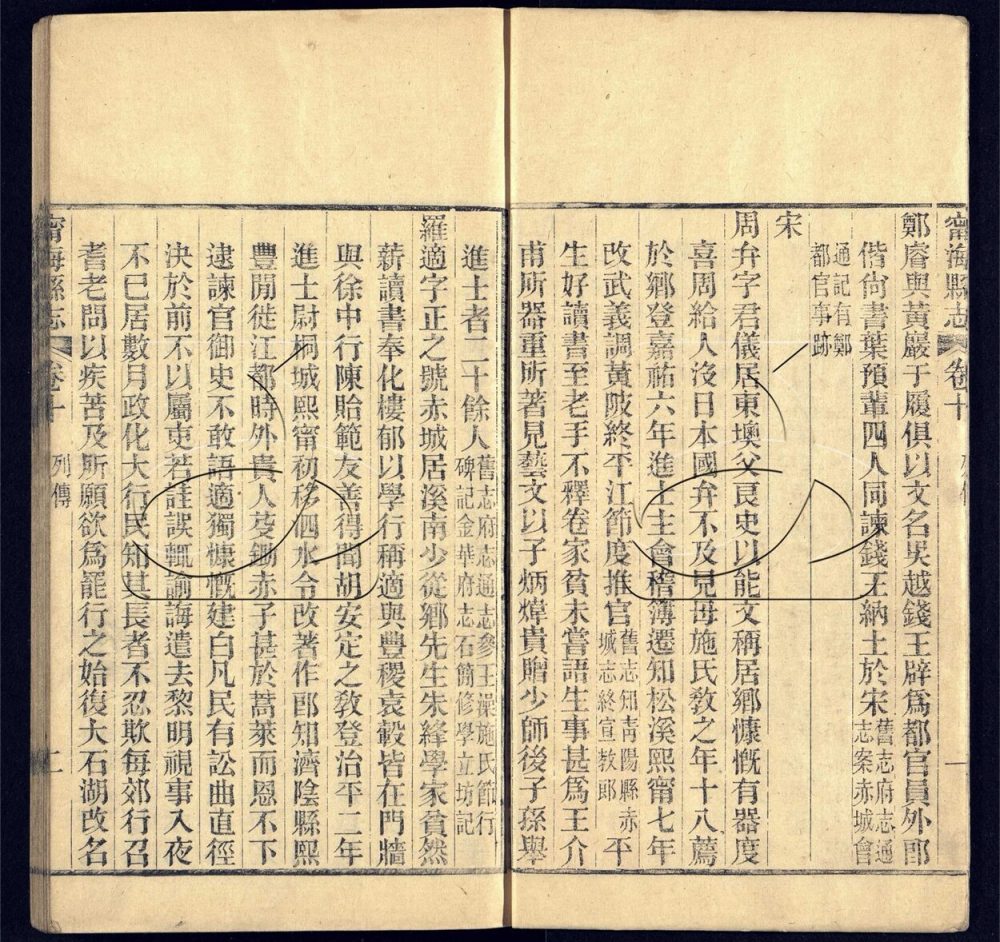 甯海縣志 卷十 列傳 一
鄭睿與黃巖于履俱以文名吳越錢王辟爲都官員外郎
偕尙書葉預輩四人同諫錢王納土於宋舊志府志通志案赤城會
通記有鄭都官事跡
宋
周弁字君儀居東墺父良史以能文稱居鄉慷慨有器度
喜周給人沒日本國弁不及見母施氏敎之年十八薦
於鄉登嘉祐六年進士主會稽簿遷知松溪熙甯七年
改武義調黃陂終平江節度推官舊志知靑陽縣赤城志終宣敎郎平
生好讀書至老手不釋卷家貧未嘗語生事甚爲王介
甫所器重所著見藝文以子炳煒貴贈少師後子孫舉
進士者二十餘人舊志府志通志參王澡施氏節行碑記金華府志石簡修學立坊記
羅適字正之號赤城居溪南少從鄉先生朱絳學家貧然
薪讀書奉化樓郁以學行稱適與豐稷袁轂皆在門牆
與徐中行陳貽範友善得聞胡安定之敎登治平二年
進士尉桐城熙甯初移泗水令改著作郎知濟陰縣熙
豐閒徙江都時外貴人芟鋤赤子甚於蒿萊而恩不下
逮諫官御史不敢語適獨慷慨建白凡民有訟曲直徑
決於前不以屬吏若詿誤輒諭誨遣去黎明視事入夜
不已居數月政化大行民知其長者不忍欺每郊行召
耆老問以疾苦及所願欲爲罷行之始復大石湖改名
甯海縣志 卷十 列傳 二